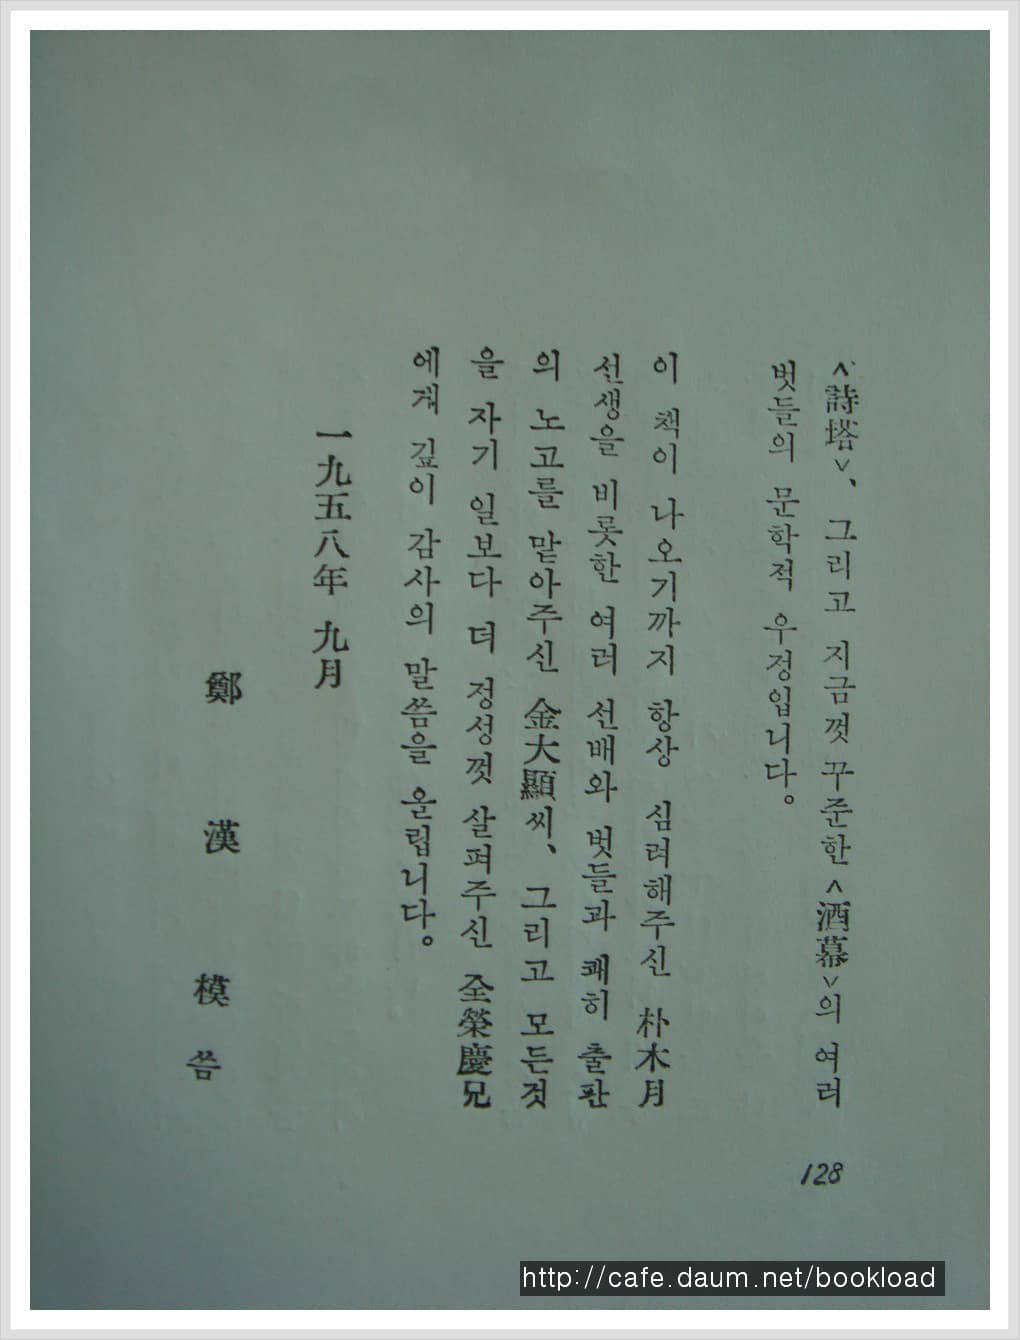 <詩塔>、 그리고 지금껏 꾸준한 <酒幕>의 여러
벗들의 문학적 우정입니다。
이 책이 나오기까지 항상 심려해주신 朴木月
선생을 비롯한 여러 선배와 벗들과 쾌히 출판
의 노고를 맡아주신 金大顯씨、 그리고 모든것
을 자기 일보다 더 정성껏 살펴주신 全榮慶兄
에게 깊이 감사의 말씀을 올립니다。
一九五八年 九月
鄭 漢 模 씀
128
http://cafe.daum.net/bookload